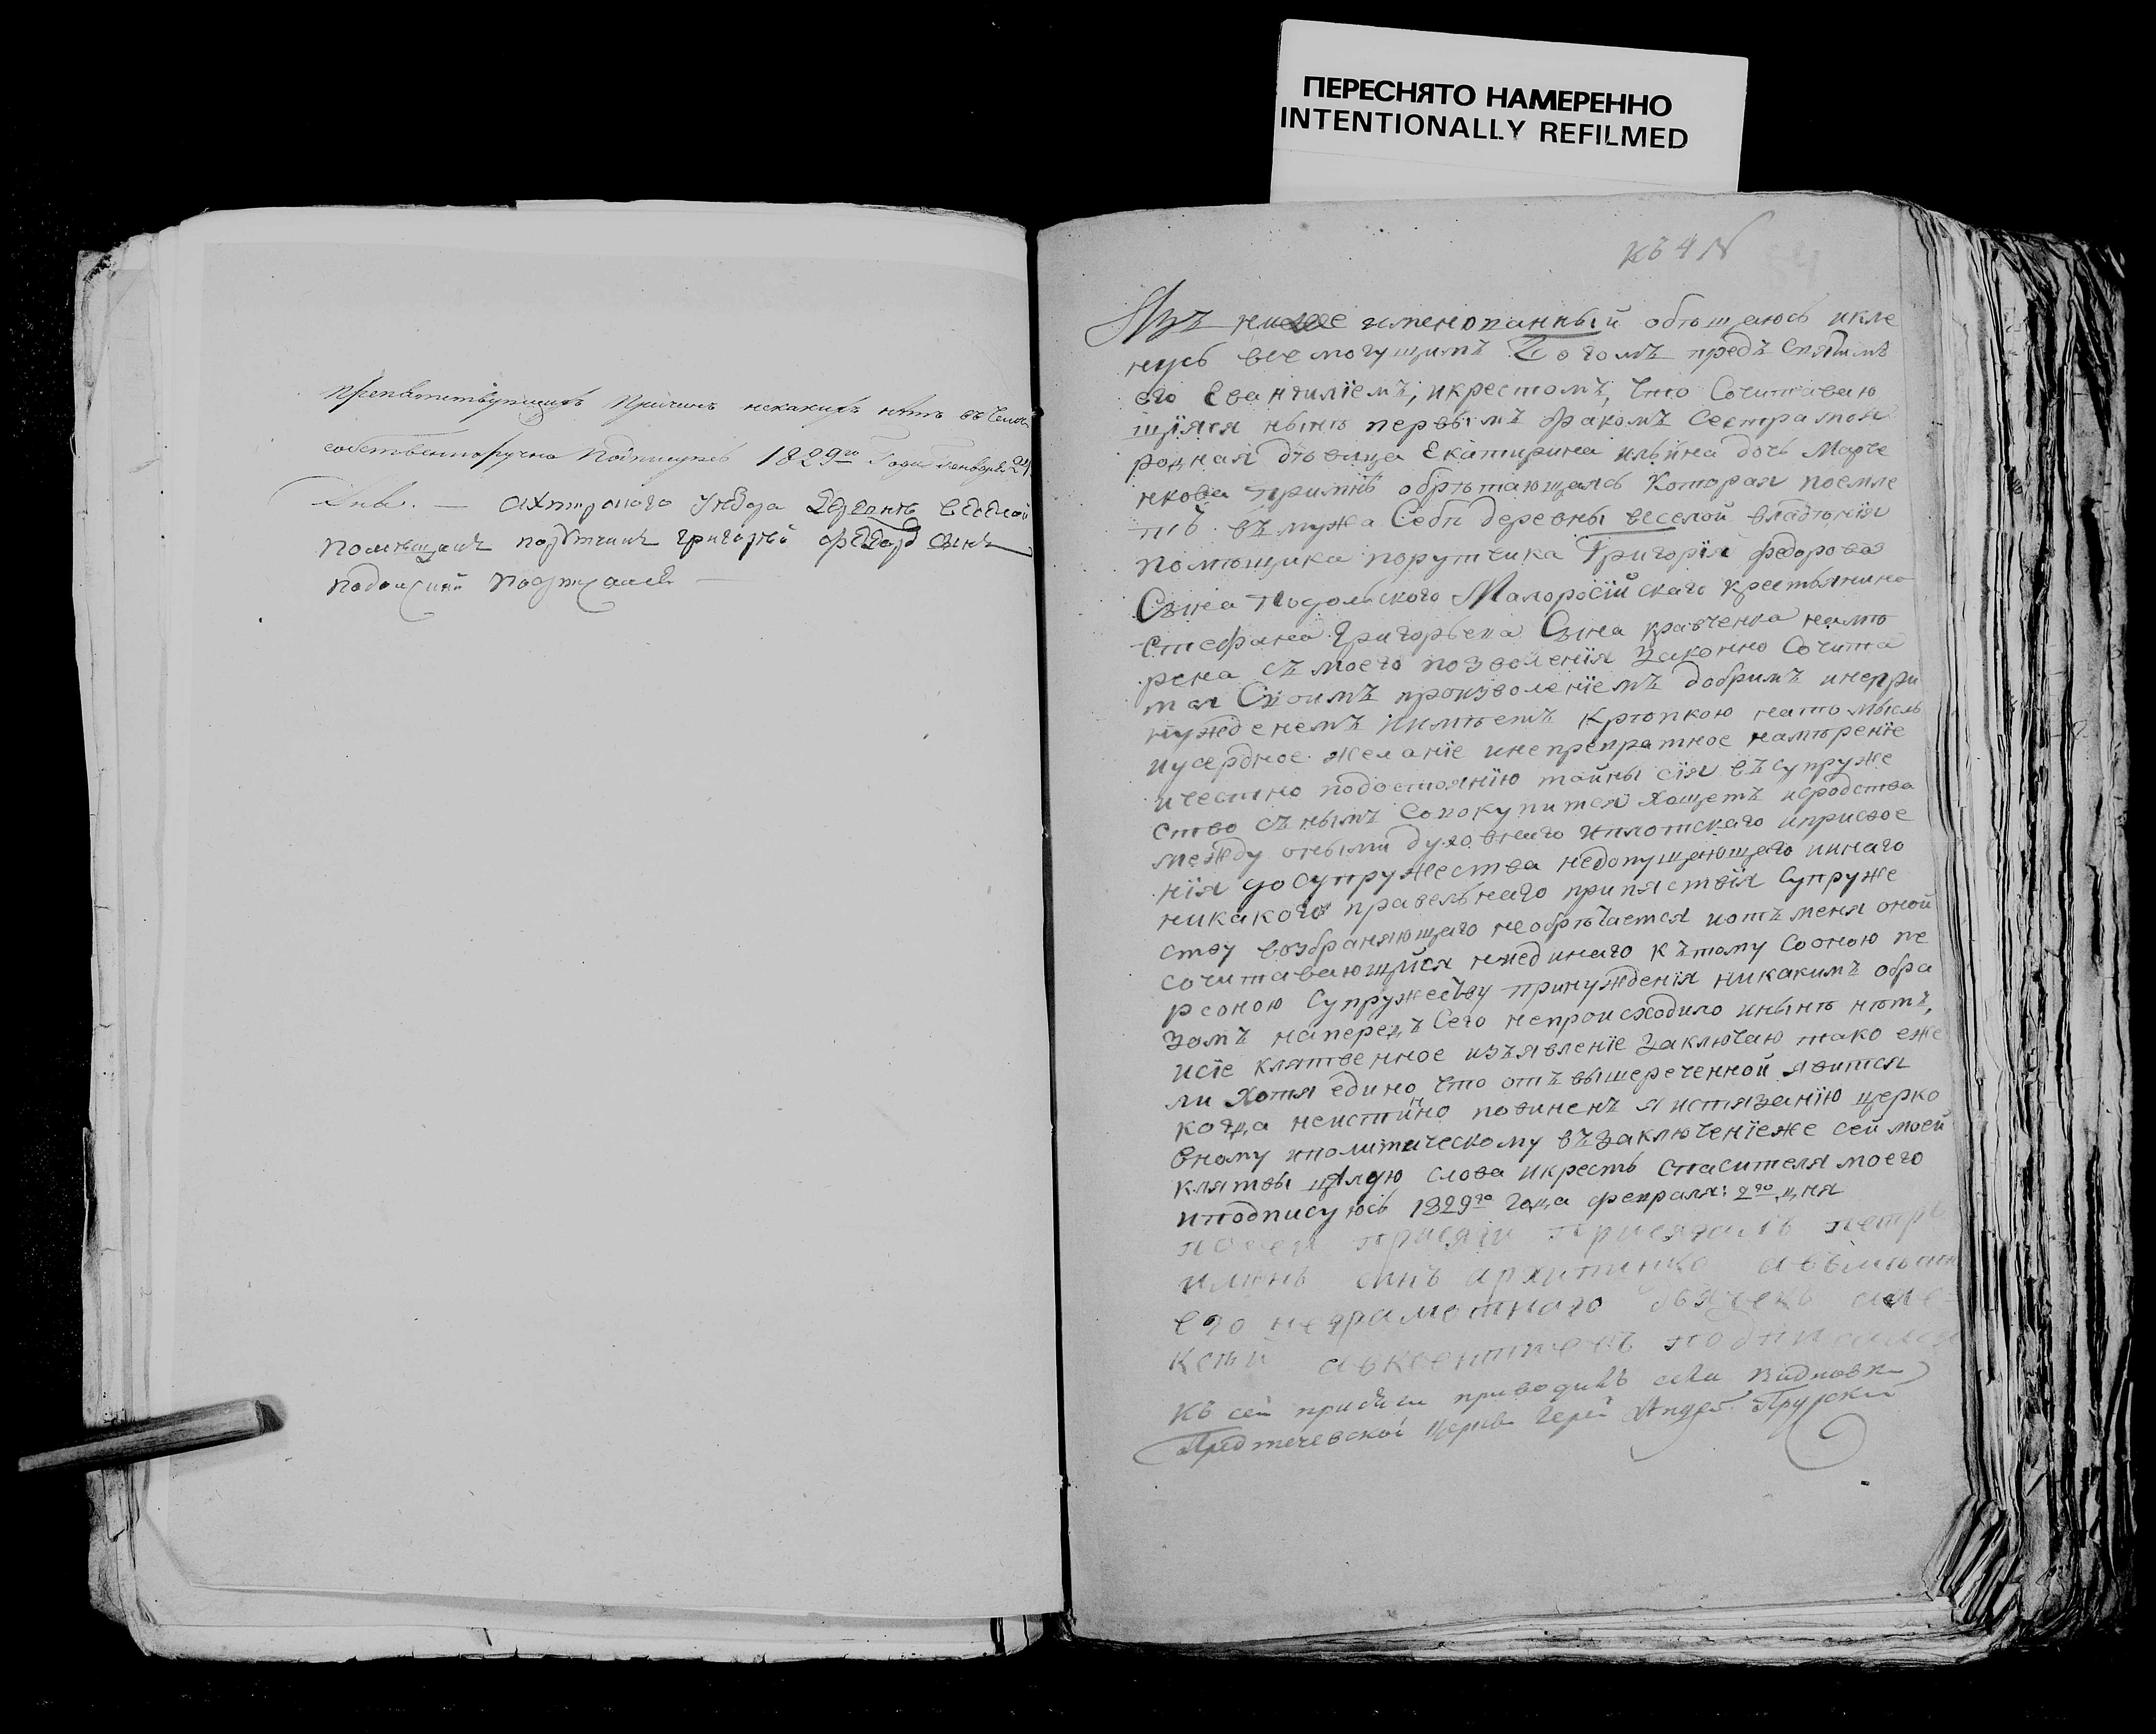 ПЕРЕСНЯТО НАМЕРЕННО
INTENTIONALLY REFILMED
препятствующихъ причинъ некакихъ нѣтъ въ чемъ
собственноручно подписуюсь 1829го Года Генваря 24
Дня. —
помѣщикъ порутчикъ григорей федоръ сынъ
къ 4 №
Азъ ниже именованный обѣщаюсь и кле
нусь все могущимъ Богомъ предъ святымъ
его Евангилїемъ, и крестомъ, что Сочитаваю
щїяся нынѣ первымъ бракомъ Сестра моя
родная дѣвица Екатирина ильина дочь Марче
нкова примнѣ обрѣтающаясь Которая поемле
тъ въ мужа Себѣ деревны веселой владѣнїя
помѣщика порутчика Григорїя федорова
Сына Подольского Малоросїйскаго крестьянина
Стефана Григорьева Сына кравченка намѣ
рена съ моего позволенїя законно Сочита
тся Своимъ произволенїемъ добримъ и непри
нужденемъ и имѣетъ крѣпкою на то мысль
и усердное желанїе и непревратное намѣренїе
и честно подостоянїю тайны сїя въ супруже
ство съ нымъ Совокупится хощетъ и сродства
между оными духовнаго и плотскаго и присвое
нїя до супружества недопущающаго и инаго
никакого правельнаго припяствїя Супруже
ству возбраняющаго необрѣтается и отъ меня оной
сочитавающийся ниединаго къ тому со оною пе
рсоною Супружеству принужденїя никакимъ обра
зомъ напередъ Сего непроисходило и нынѣ нѣтъ,
и сїе клятвенное изъявленїе заключаю тако еже
ли хотя едино что отъ вышереченной явится
когда неистинно повиненъ я истязанїю церко
вному и политическому въ заключенїе же сей моей
клятвы цѣлую слова и крестъ спасителя моего
и подписуюсь 1829го года февраля: 2го дня
по сей присяги присягалъ петръ
сынъ архипенко а въмѣсто
его неграмотнаго дьячекъ але-
ксѣй подписался
Къ сей присяги приводилъ села
Предтечевской церкви Іерей Андрей